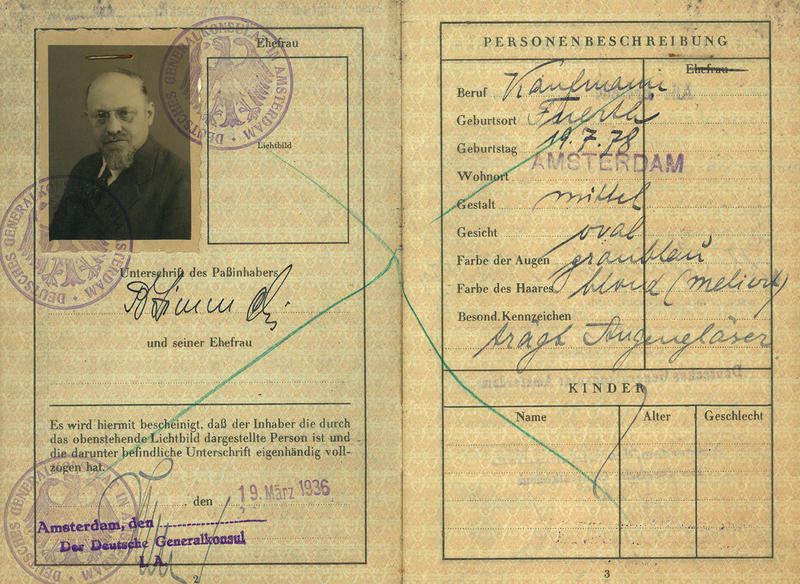 DEUTSCHES GENERALKONSULAT IN AMSTERDAM
Ehefrau
Lichtbild
DEUTSCHES GENERALKONSULAT IN AMSTERDAM
Unterschrift des Paßinhabers
und seiner Ehefrau
Es wird hiermit bescheinigt, daß der Inhaber die durch
das obenstehende Lichtbild dargestellte Person ist und
die darunter befindliche Unterschrift eigenhändig voll-
zogen hat.
, den 19. März 1936
Amsterdam, den
Der Deutsche Generalkonsul
I. A.
2
PERSONENBESCHREIBUNG
Ehefrau
Beruf Kaufmann
Geburtsort Fuerth
Geburtstag 19.7.78
Wohnort AMSTERDAM
Gestalt mittel
Gesicht oval
Farbe der Augen graublau
Farbe des Haares blond (meliert)
Besond. Kennzeichen
trägt Augengläser
KINDER
Name Alter Geschlecht
3